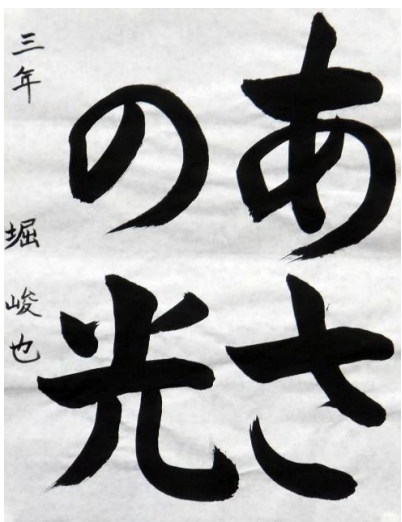 あさ
の光
三年 堀 峻也